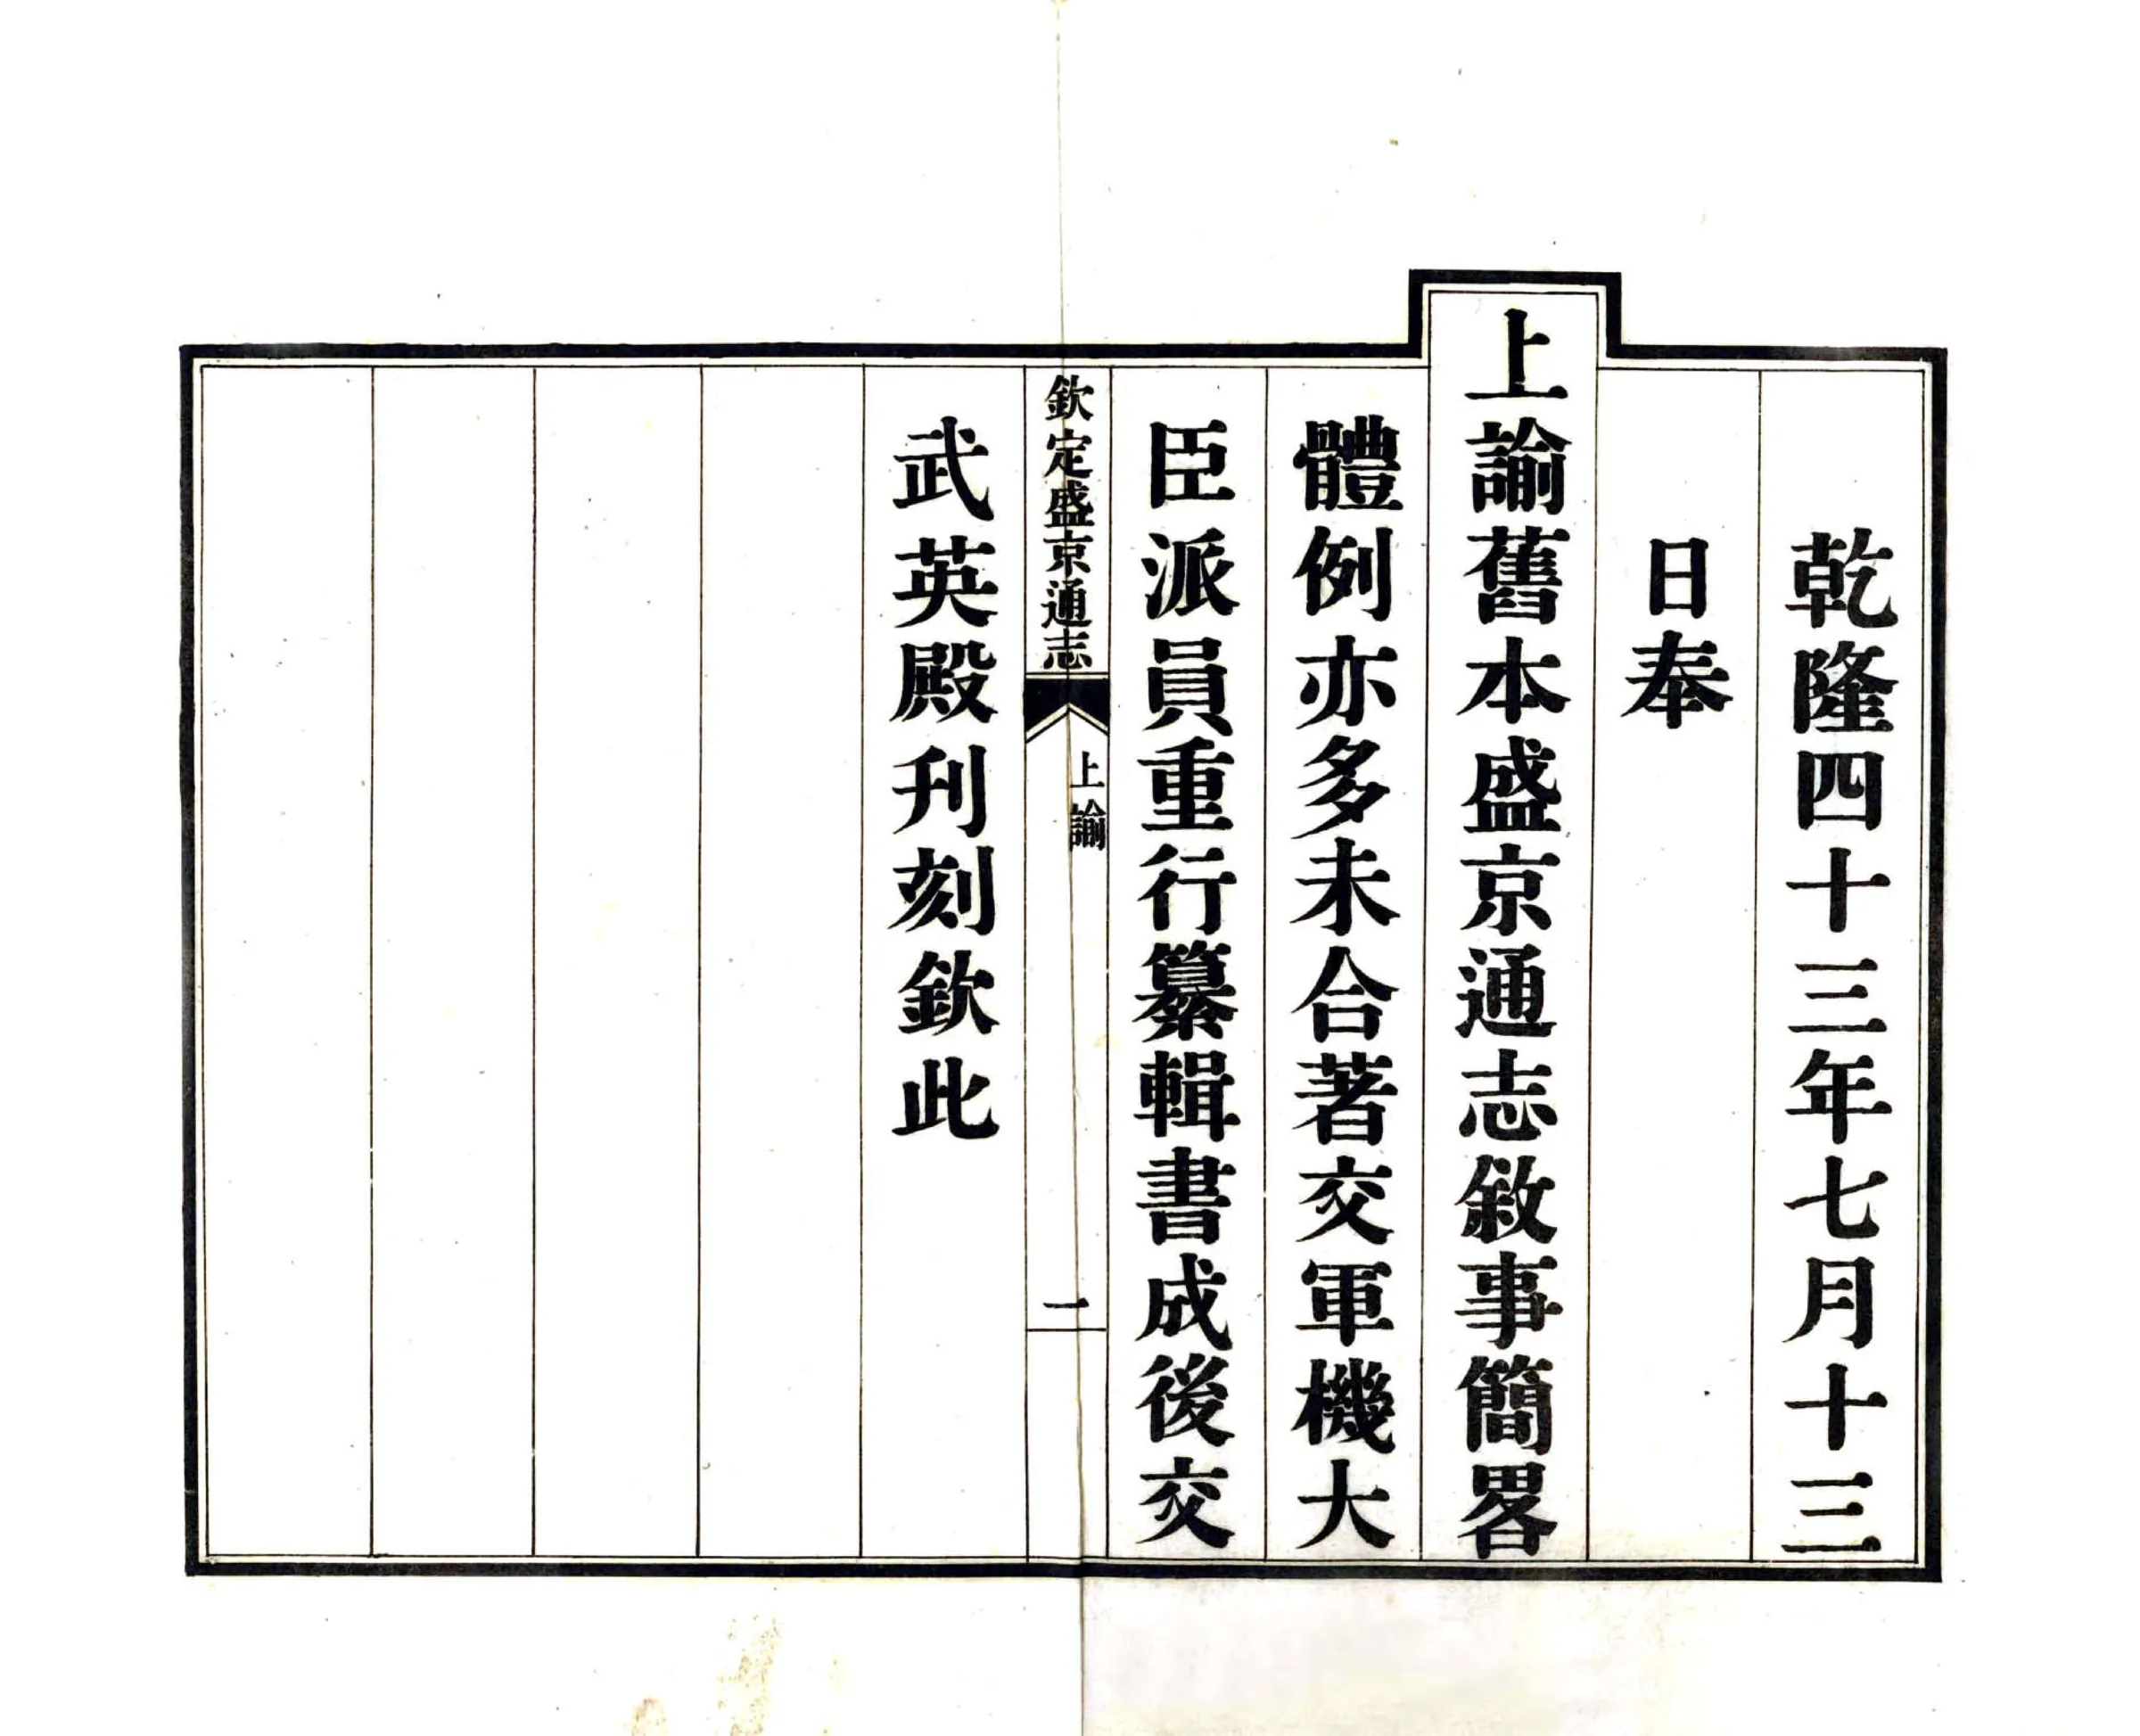 乾隆四十三年七月十三
日奉
上諭舊本盛京通志敘事簡畧
體例亦多未合著交軍機大
臣派員重行纂輯書成後交
欽定盛京通志
上諭
一
武英殿刊刻欽此